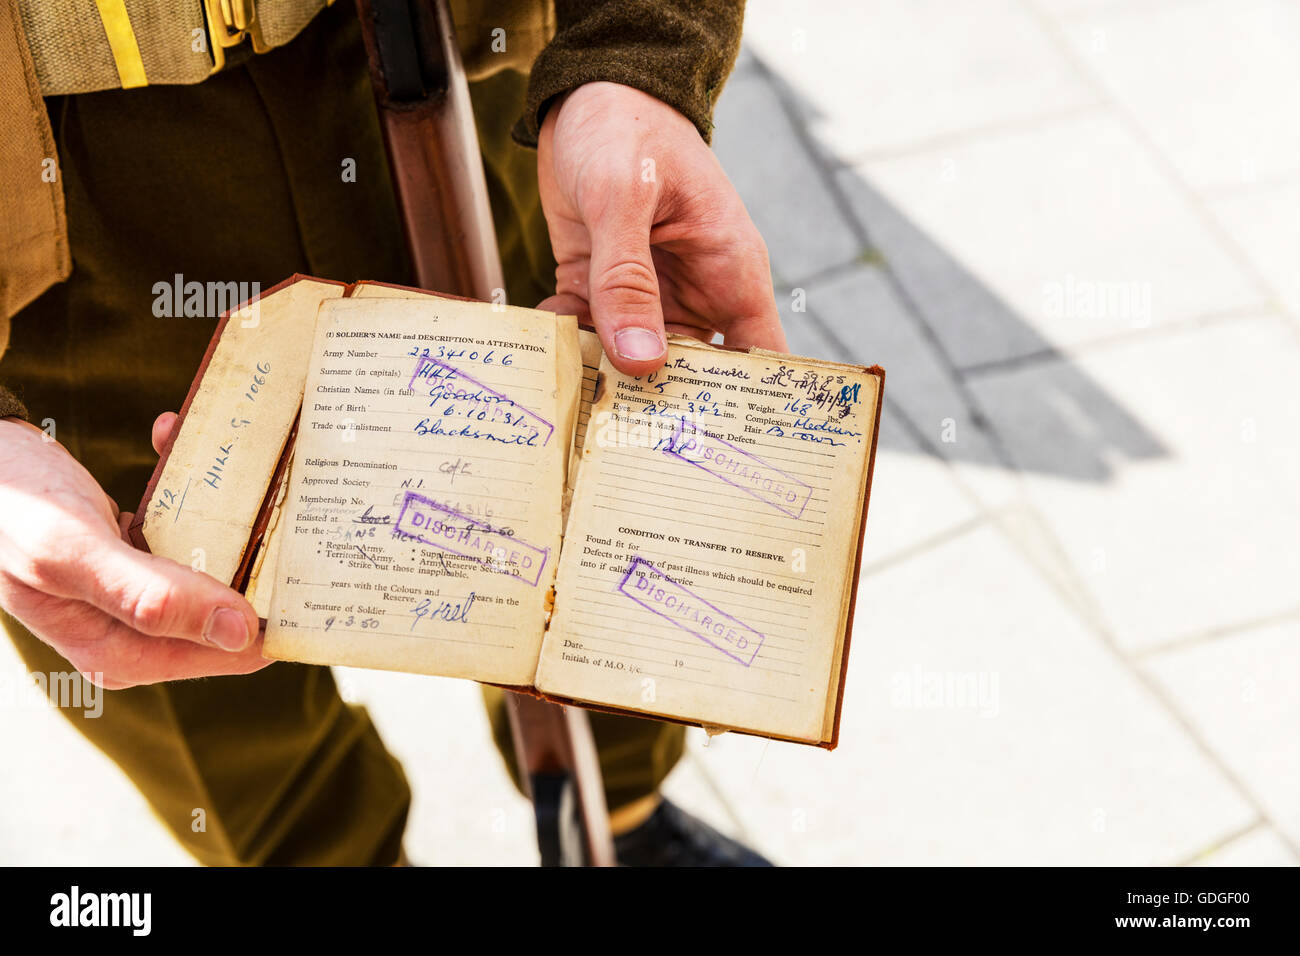 HILL G 1066
2
(1) SOLDIER'S NAME and DESCRIPTION on ATTESTATION.
Army Number 22341066
Surname (in capitals) HILL
Christian Names (in full) Gordon
Date of Birth 6.10.31.
Trade on Enlistment Blacksmith
DISCHARGED
Religious Denomination C of E
Approved Society N.I.
Membership No.
Enlisted at On 9.3.50
For the:-
DISCHARGED
* Regular Army. * Supplementary Reserve.
* Territorial Army. * Army Reserve Section D.
* Strike out those inapplicable.
For years with the Colours and years in the
Reserve.
Signature of Soldier G Hill
Date 9.3.50
service
with
DESCRIPTION ON ENLISTMENT.
Height 5 ft. 10 ins. Weight 168 lbs.
Maximum Chest 34½ ins. Complexion Medium
Eyes Blue Hair Brown
Distinctive Marks and Minor Defects
DISCHARGED
CONDITION ON TRANSFER TO RESERVE.
Found fit for
Defects or History of past illness which should be enquired
into if called up for Service
DISCHARGED
Date 19
Initials of M.O. i/c.
alamy
alamy stock photo
Image ID: GDGF00
www.alamy.com